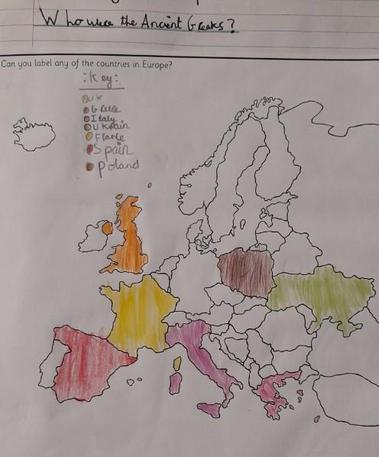 Who were the Ancient Greeks?
Can you label any of the countries in Europe?
:Key:
UK
Italy
UKrain
Spain
Poland